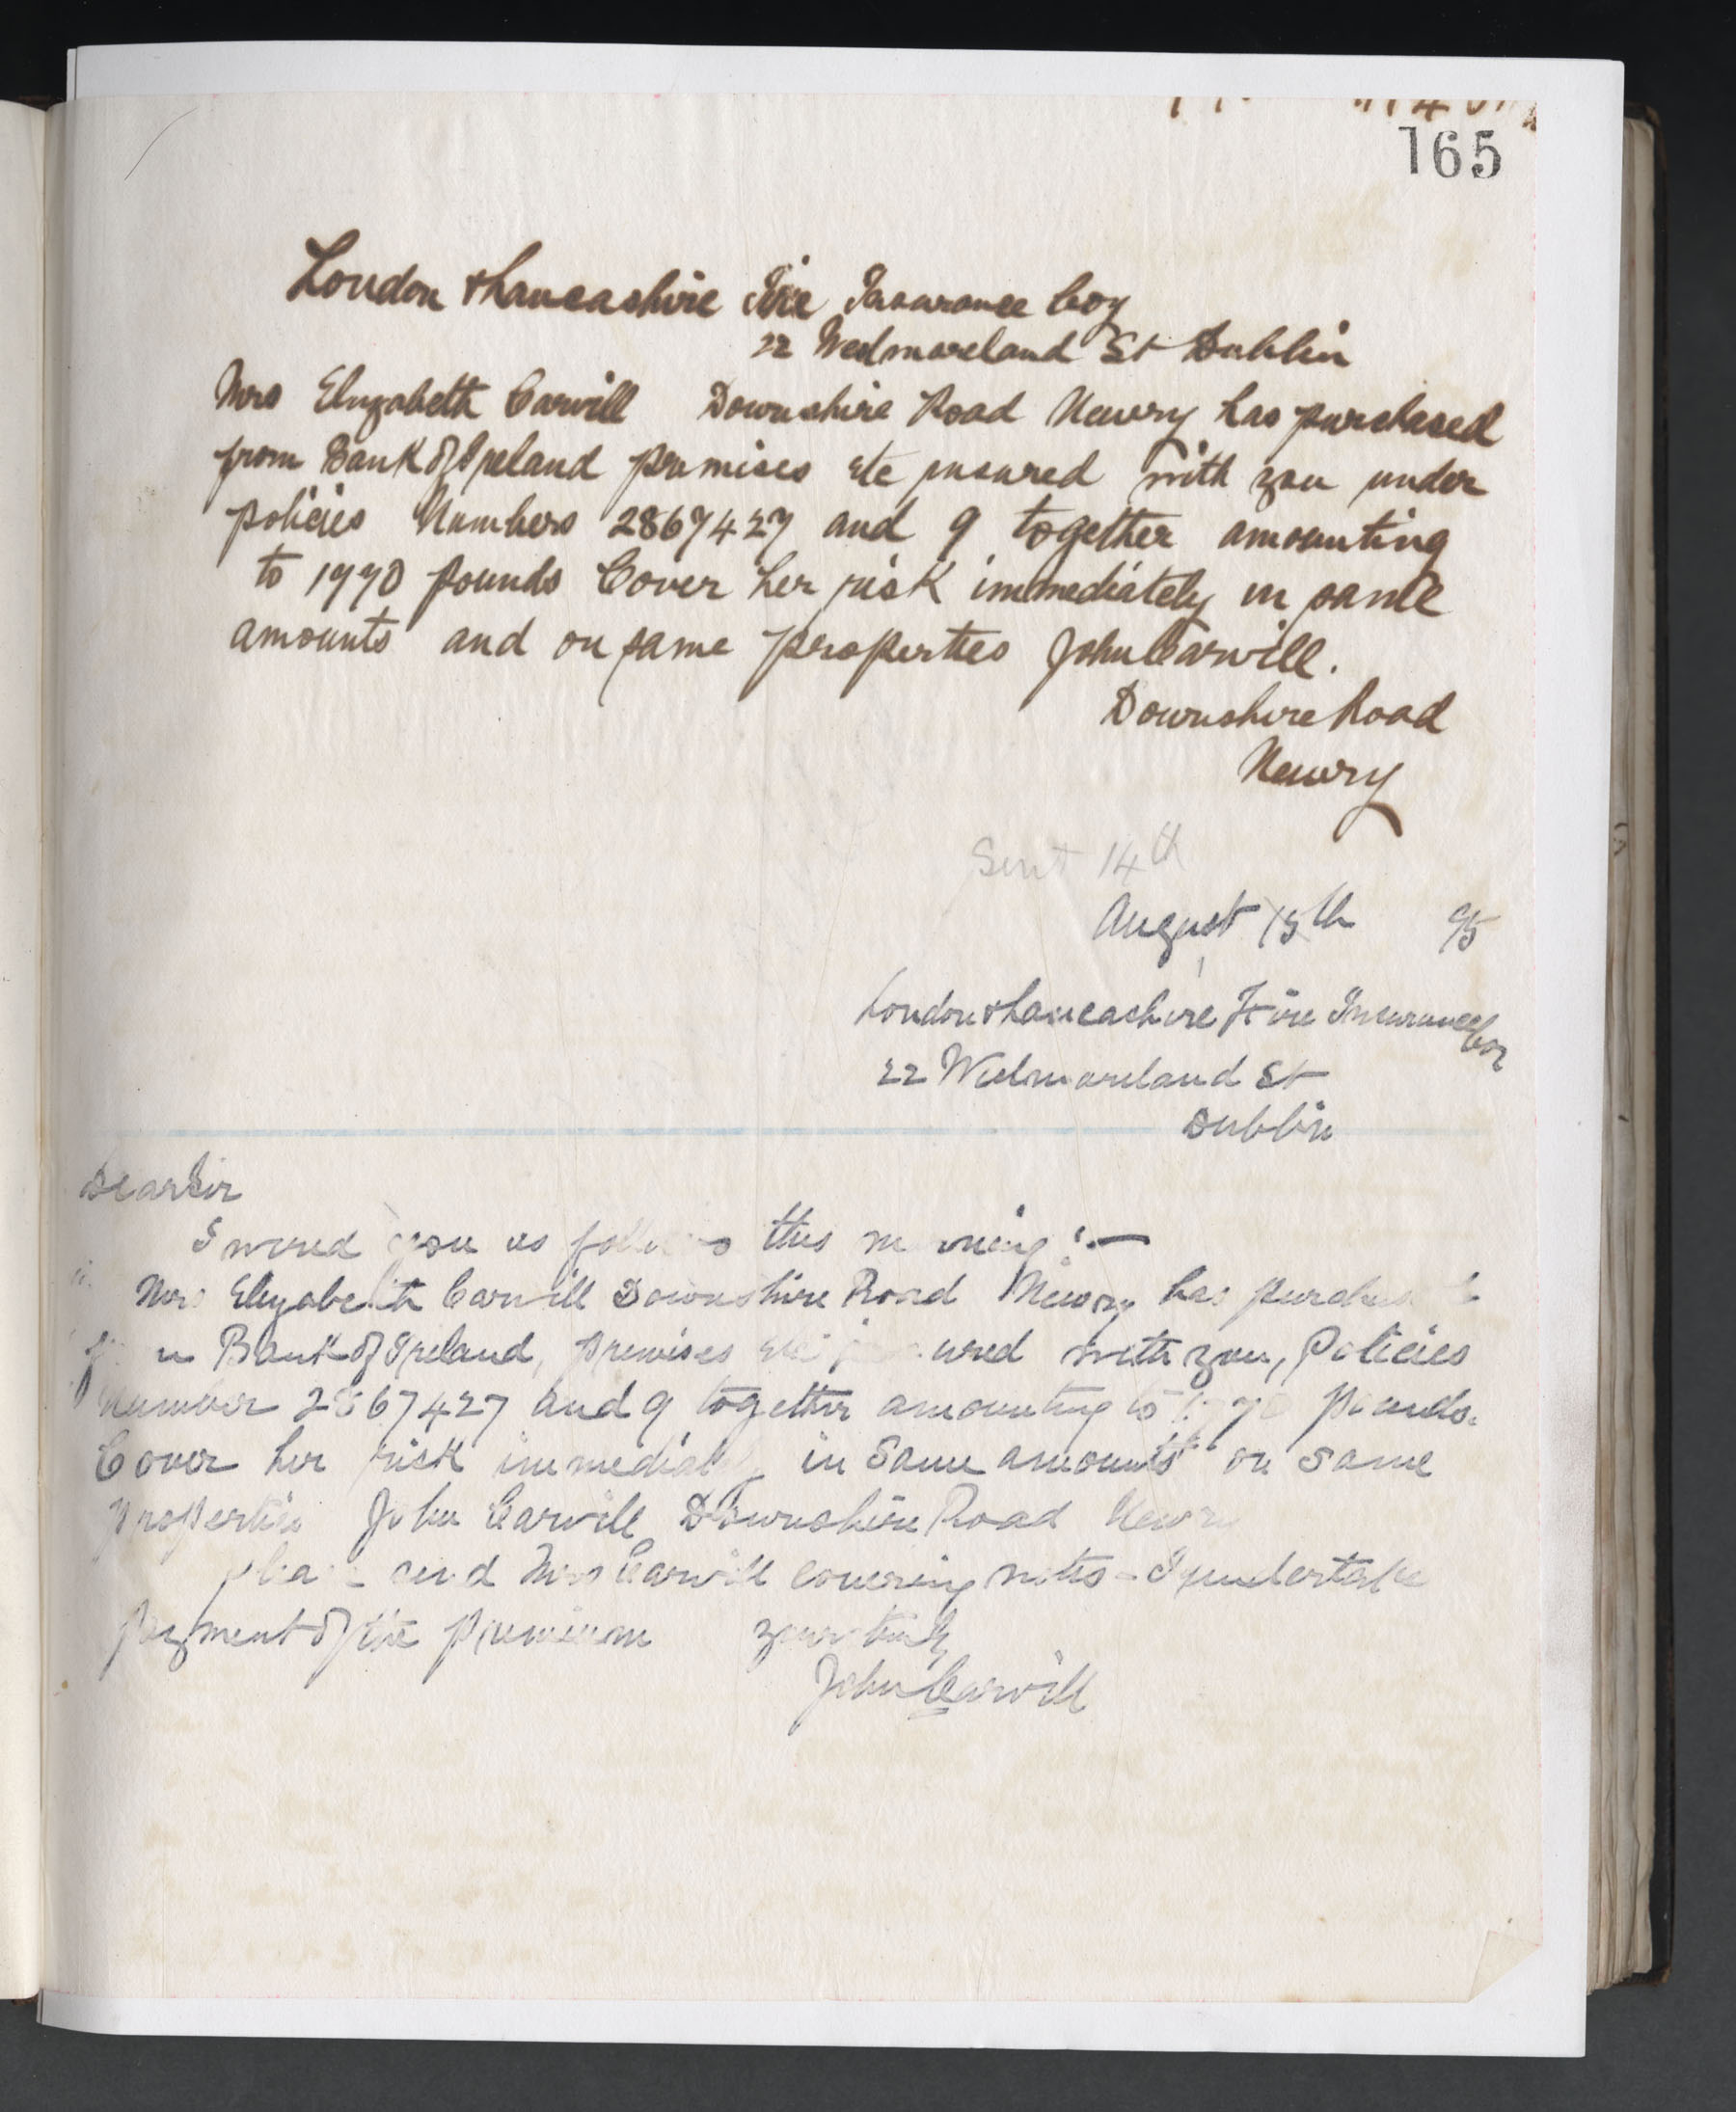 165
London & Lancashire Fire Insurance Coy
22 Westmoreland St Dublin
Mrs Elizabeth Carvill Downshire Road Newry has purchased
from Bank of Ireland premises etc insured with you under
policies Numbers 2867427 and 9 together amounting
to 1770 pounds Cover her risk immediately in same
amounts and on same properties John Carvill.
Downshire Road
Newry
Sent 14th
August 15th 95
London & Lancashire Fire Insurance Coy
22 Westmoreland St
Dublin
Dear Sir
I wired you as follows this morning :—
Mrs Elizabeth Carvill Downshire Road Newry has purchased
from Bank of Ireland, premises etc insured with you, Policies
Number 2867427 and 9 together amounting to 1770 pounds.
Cover her risk immediately in same amounts on same
properties John Carvill Downshire Road Newry
please send Mrs Carvill covering notes - I undertake
payment of the premium yours truly
John Carvill